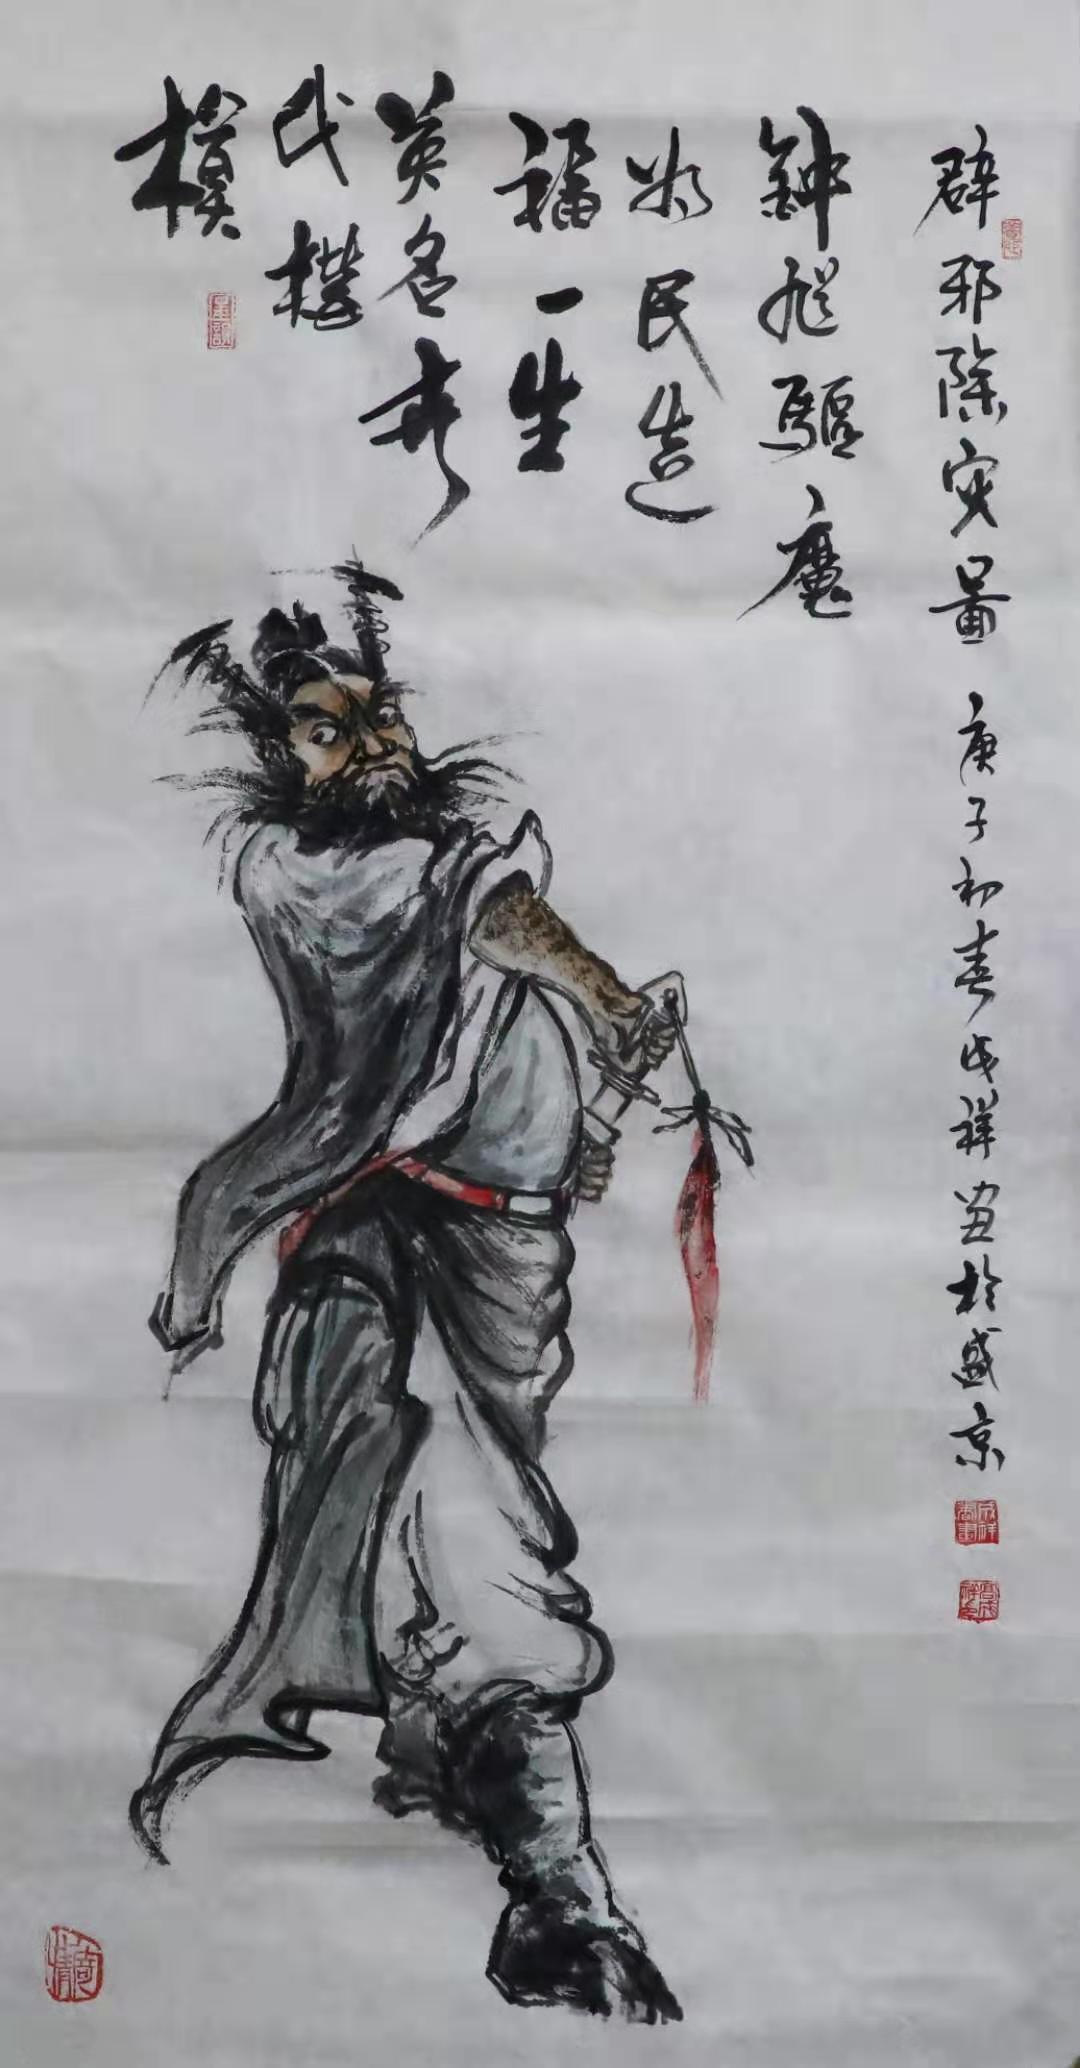 辟邪除灾图 庚子初春成祥画於盛京
鍾馗驅魔
為民造
福一生
英名舉
代楷
模